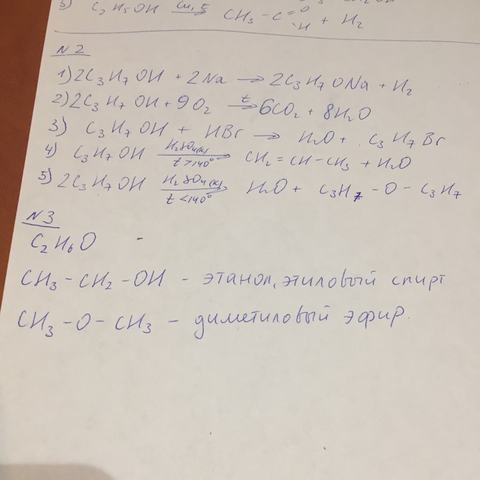 3) C₂H₅OH Cu, t → CH₃ - C =O -H + H₂
N 2
1) 2C₃H₇OH + 2Na → 2C₃H₇ONa + H₂
2) 2C₃H₇OH + 9O₂ t → 6CO₂ + 8H₂O
3) C₃H₇OH + HBr → H₂O + C₃H₇Br
4) C₃H₇OH H₂SO₄(к) t>140° → CH₂ = CH - CH₃ + H₂O
5) 2C₃H₇OH H₂SO₄(к) t<140° → H₂O + C₃H₇ - O - C₃H₇
N 3
C₂H₆O -
CH₃ - CH₂ - OH - этанол, этиловый спирт
CH₃ - O - CH₃ - диметиловый эфир.